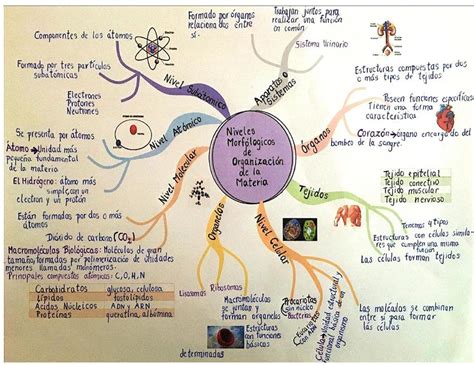 Niveles
Morfológicos
de
Organización
de la
Materia
Nivel Subatómico
Componentes de los átomos
Formado por tres partículas
subatómicas
Electrones
Protones
Neutrones
Nivel Atómico
Se presenta por átomos
Átomo → Unidad más
pequeña fundamental
de la materia
El Hidrógeno: átomo más
simple, con un
electrón y un protón
Nivel Molecular
Están formados por dos o más
átomos
Dióxido de carbono (CO₂)
Macromoléculas Biológicas: Moléculas de gran
tamaño, formadas por polimerización de unidades
menores llamadas monómeros.
Principales compuestos atómicos: C, O, H, N
Carbohidratos glucosa, celulosa
Lípidos fosfolípidos
Ácidos Nucleicos ADN y ARN
Proteínas queratina, albúmina
Organelos
Lisosomas
Ribosomas
Macromoléculas
se juntas y
forman organelos
Estructuras
con funciones
básicas
determinadas
Nivel Celular
Procariotas
con núcleo
Bacterias
Eucariotas
Célula → Unidad estructural y
funcional básica de un
organismo
Las moléculas se combinan
entre sí para formar
las células
Tejidos
Tejido epitelial
Tejido conectivo
Tejido muscular
Tejido nervioso
Tenemos 4 tipos
Estructuras con células similares
que cumplen una misma
función
Las células forman tejidos
Órganos
Estructuras compuestas por dos
o más tipos de tejidos
Poseen funciones específicas
Tienen una forma
característica
Corazón → órgano encargado del
bombeo de la sangre.
Aparatos y
Sistemas
Formado por órganos
relacionados entre
sí.
Trabajan juntos para
realizar una función
en común
Sistema Urinario